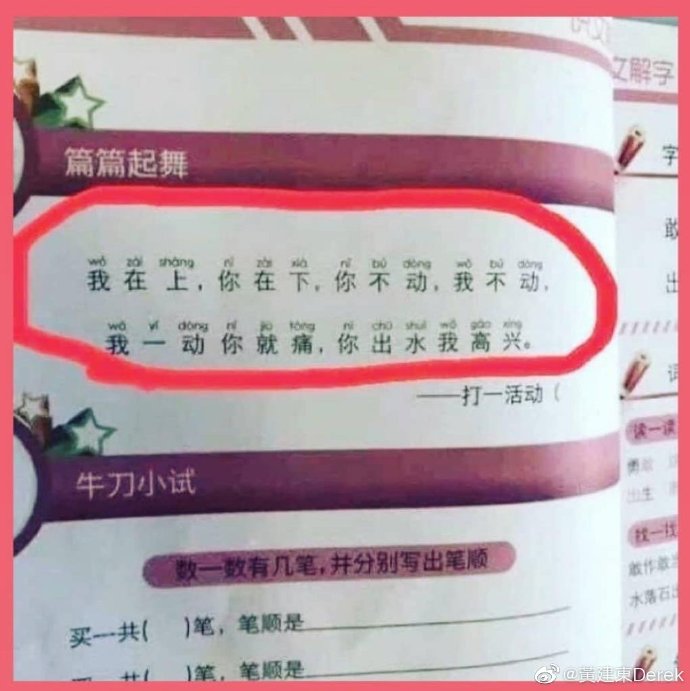 篇篇起舞
wǒ zài shàng nǐ zài xià nǐ bú dòng wǒ bú dòng
我在上，你在下，你不动，我不动，
wǒ yī dòng nǐ jiù tòng nǐ chū shuǐ wǒ gāo xìng
我一动你就痛，你出水我高兴。
——打一活动（
牛刀小试
数一数有几笔，并分别写出笔顺
买一共( )笔，笔顺是
一共( )笔，笔顺是
文解字
字
敢
出
词
读一读
勇敢
出生
找一找
敢作敢
水落石出
@黄建東Derek